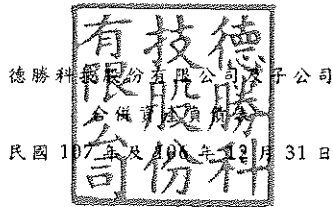 德勝科技股份有限公司及子公司
合併資產負債表
民國 107 年及 106 年 12 月 31 日
德勝科
技股份
有限公司